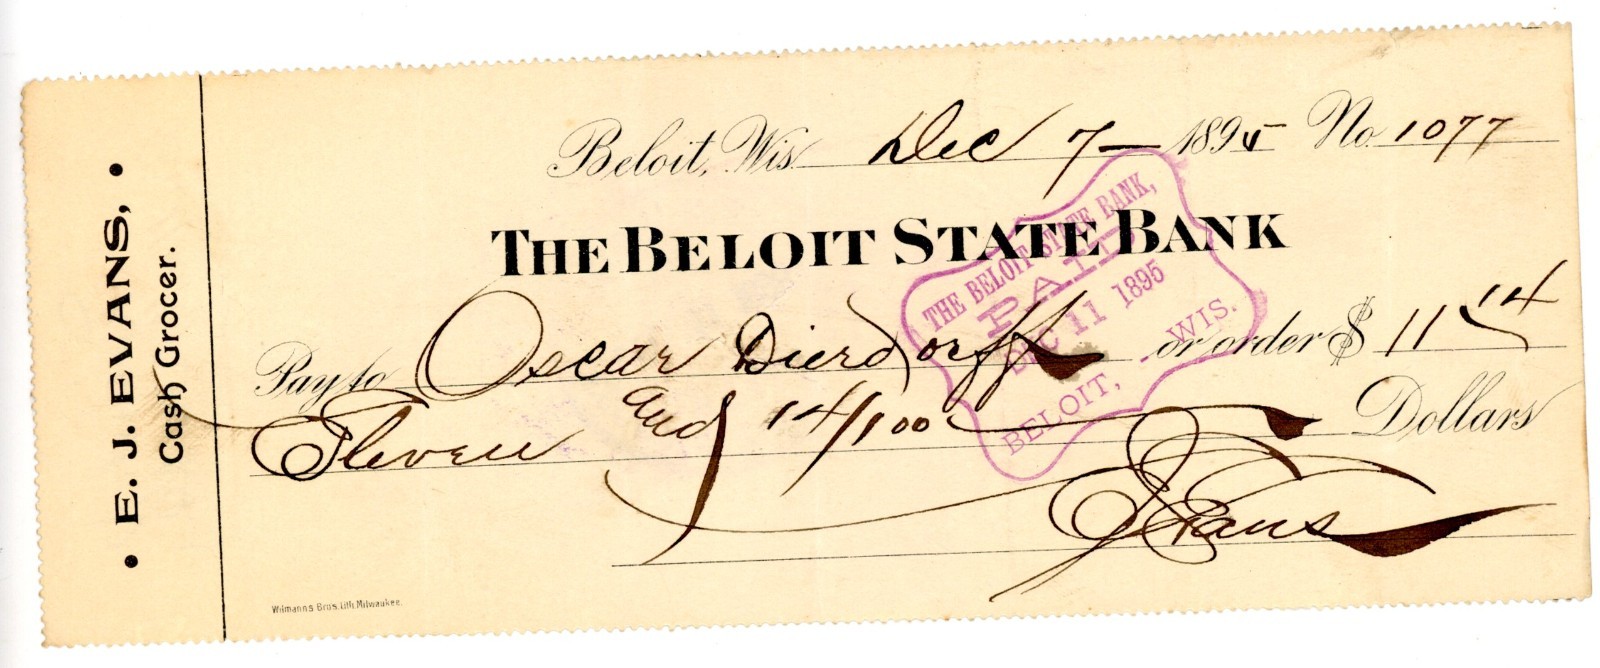 • E. J. EVANS, •
Cash Grocer.
Beloit, Wis. Dec 7 — 1895 No. 1077
THE BELOIT STATE BANK
Pay to Oscar Dierdorff or order $ 11 14
Eleven and 14/100 Dollars
E J Evans
THE BELOIT STATE BANK,
PAID
DEC 11 1895
BELOIT, WIS.
Wilmanns Bros. Lith. Milwaukee.